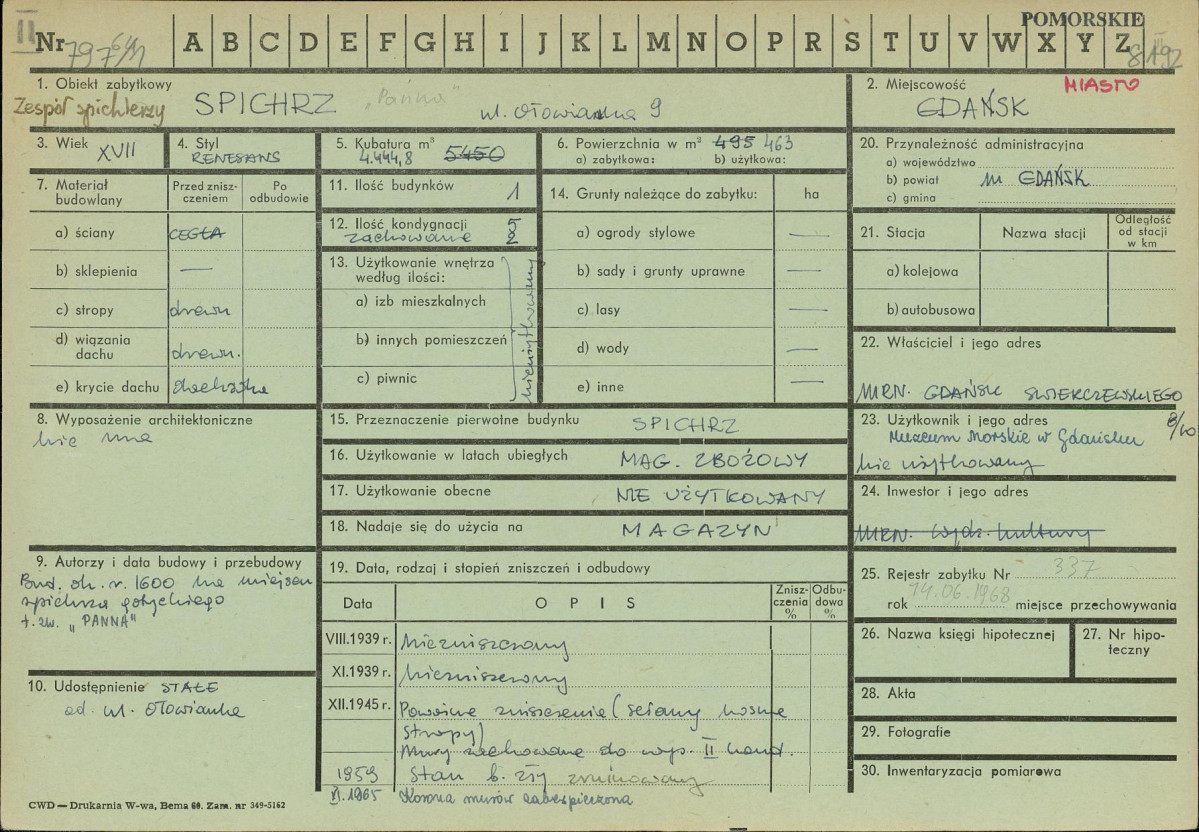 II
POMORSKIE
Nr 797 A B C D E F G H I J K L M N O P R S T U V W X Y Z
1. Obiekt zabytkowy
Zespół spichlerzy SPICHRZ „Panna" ul. Ołowianka 9
2. Miejscowość MIASTO
GDAŃSK
3. Wiek XVII
4. Styl
RENESANS
5. Kubatura m³
4.444,8 5450
6. Powierzchnia w m² 495 463
a) zabytkowa: b) użytkowa:
7. Materiał budowlany
Przed zniszczeniem
Po odbudowie
a) ściany CEGŁA
b) sklepienia —
c) stropy drewn
d) wiązania dachu drewn.
e) krycie dachu dachówka
8. Wyposażenie architektoniczne
nie ma
9. Autorzy i data budowy i przebudowy
Bud. ok. r. 1600 na miejscu
spichrza gotyckiego
t. zw. „PANNA"
10. Udostępnienie STAŁE
od ul. Ołowianka
11. Ilość budynków 1
12. Ilość kondygnacji 5
zachowane 2
13. Użytkowanie wnętrza
według ilości:
a) izb mieszkalnych
b) innych pomieszczeń
c) piwnic
nieużytkowany
14. Grunty należące do zabytku: ha
a) ogrody stylowe —
b) sady i grunty uprawne —
c) lasy —
d) wody —
e) inne —
15. Przeznaczenie pierwotne budynku SPICHRZ
16. Użytkowanie w latach ubiegłych MAG. ZBOŻOWY
17. Użytkowanie obecne NIE UŻYTKOWANY
18. Nadaje się do użycia na MAGAZYN
19. Data, rodzaj i stopień zniszczeń i odbudowy
Data OPIS Zniszczenia % Odbudowa %
VIII.1939 r. niezniszczony
XI.1939 r. niezniszczony
XII.1945 r. Poważne zniszczenie (ściany nośne
stropy)
Mury zachowane do wys. II kond.
1959 Stan b. zły zrujnowany
VI.1965 Korona murów zabezpieczona
20. Przynależność administracyjna
a) województwo
b) powiat m GDAŃSK
c) gmina
21. Stacja
Nazwa stacji
Odległość od stacji w km
a) kolejowa
b) autobusowa
22. Właściciel i jego adres
MRN. GDAŃSK SWIERCZEWSKIEGO
8/10
23. Użytkownik i jego adres
Muzeum Morskie w Gdańsku
nie użytkowany
24. Inwestor i jego adres
MRN. Wydz. Kultury
25. Rejestr zabytku Nr 337
rok 14.06.1968 miejsce przechowywania
26. Nazwa księgi hipotecznej
27. Nr hipoteczny
28. Akta
29. Fotografie
30. Inwentaryzacja pomiarowa
CWD — Drukarnia W-wa, Bema 60. Zam. nr 349-5162